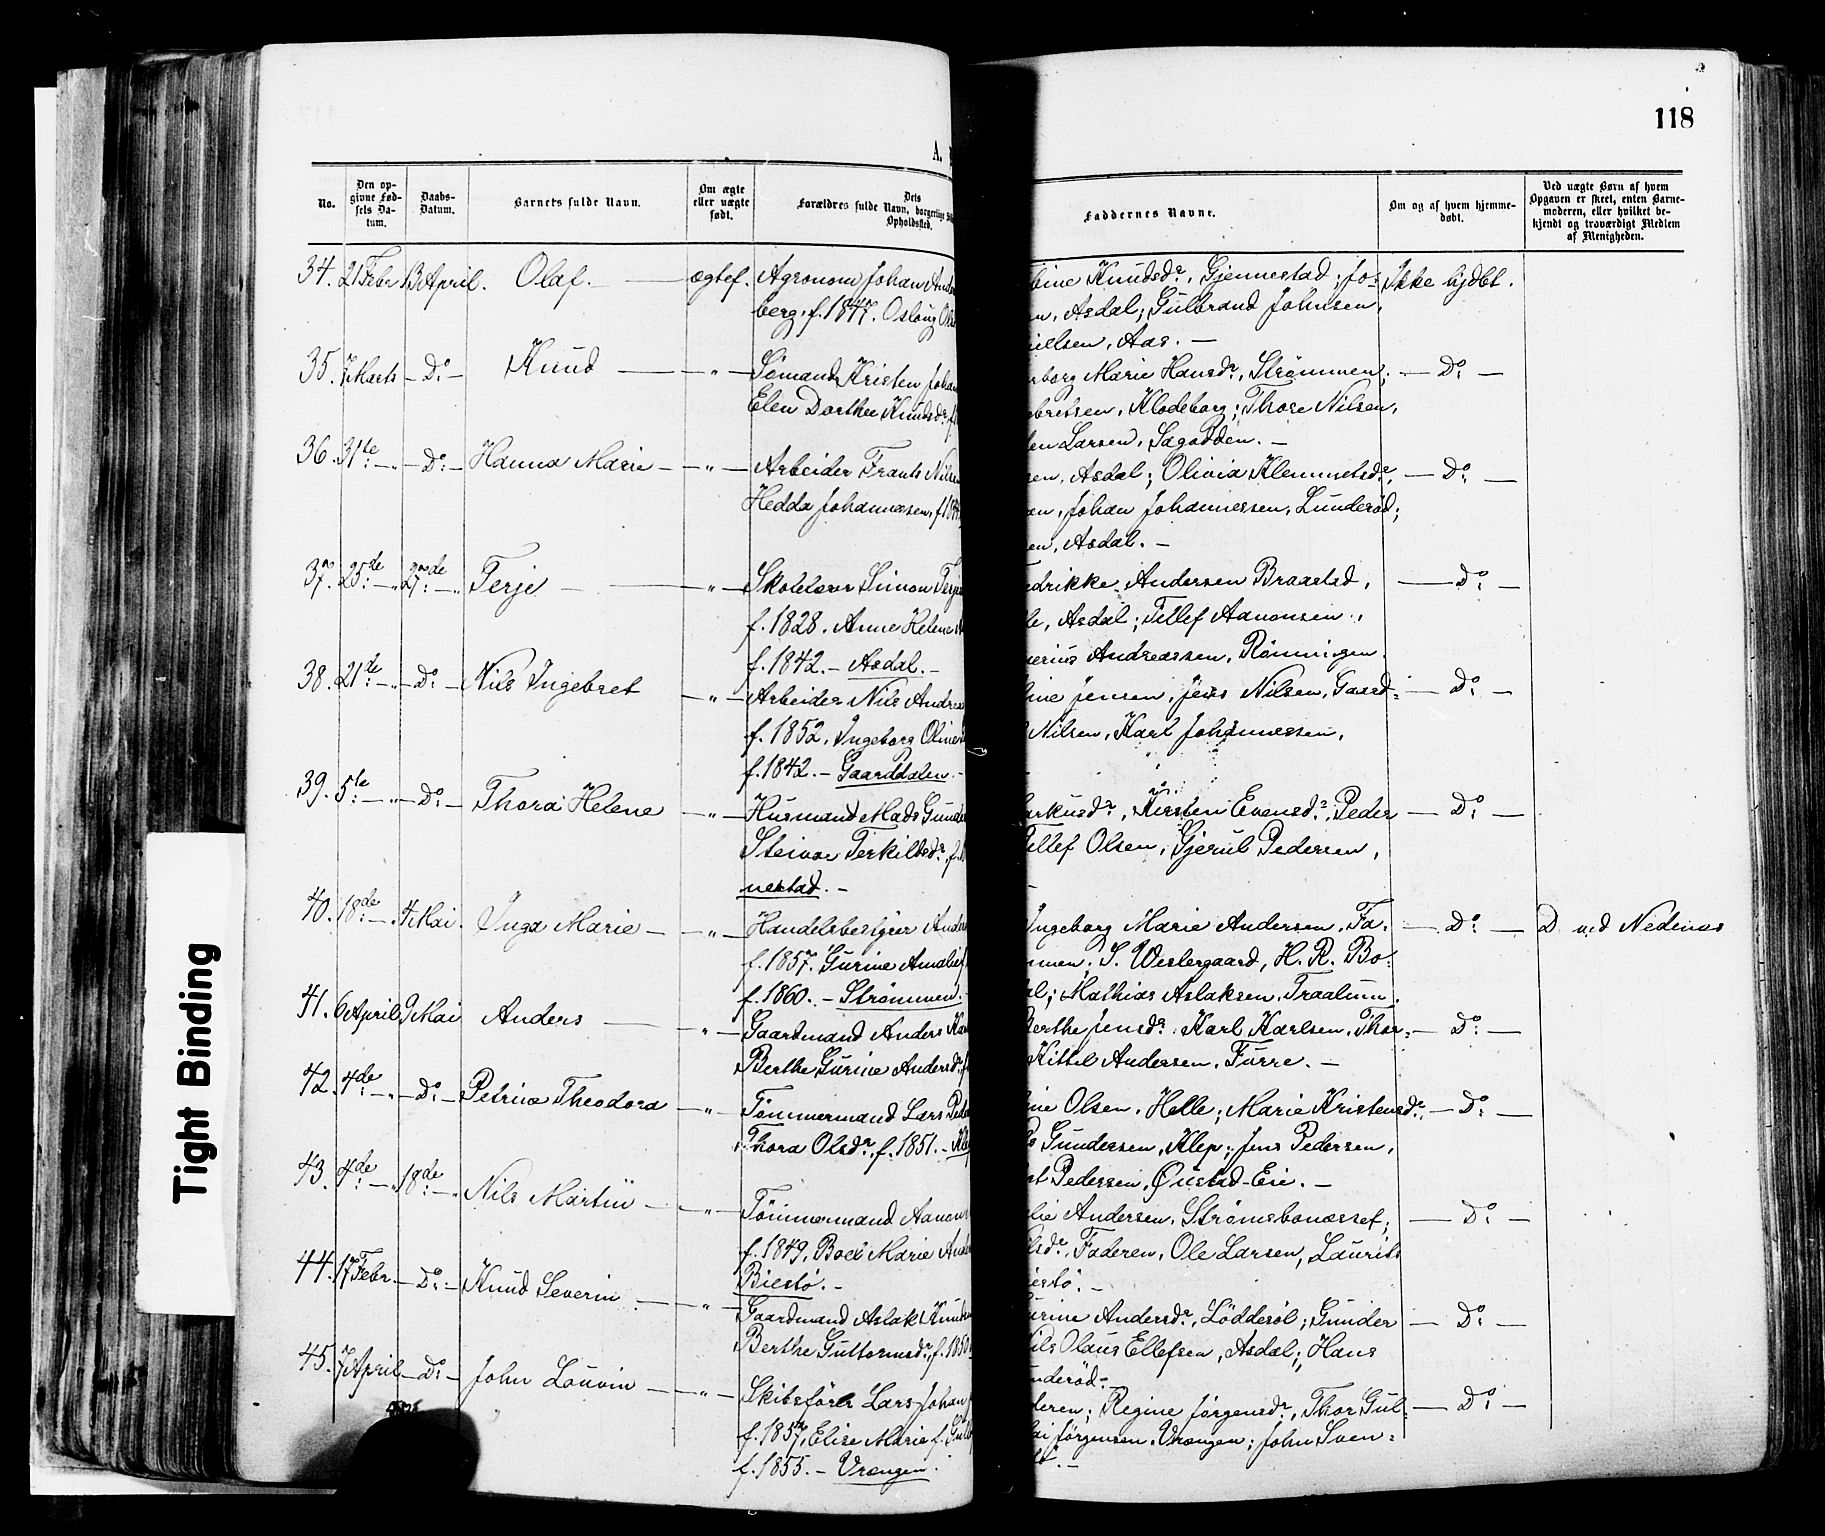 118
A.
No.
Den op-
givne Fød-
sels Da-
tum.
Daabs-
Datum.
Barnets fulde Navn.
Om ægte
eller uægte
født.
Dets
Forældres fulde Navn, borgerlige
Opholdssted.
Faddernes Navne.
Om og af hvem hjemme-
døbt.
Ved uægte Børn af hvem
Opgaven er skeet, enten Barne-
moderen, eller hvilket be-
kjendt og troværdigt Medlem
af Menigheden.
34. 21 Febr 13 April. Olaf. — ægtef. Agronom Johan And
berg, f. 1847. Oslaug Ols
bine Knudsdr, Gjennestad; Jo- Ikke hjdbt.
n, Asdal; Gulbrand Johnsen,
ielsen, Aas. —
35. 7 Marts — Do — Knud — " — Sømand Kristen Johan
Elen Dorthee Knudsdr, f
rborg Marie Hansdr, Strømmen; — Do: —
bretsen, Klodeborg; Thore Nilsen,
en Larsen, Sagodden. —
36. 31te — " — Do: — Hanna Marie — " — Arbeider Frants Nilsen
Hedda Johannesen, f. 18
sen, Asdal; Olivia Klemmetsdr, — Do: —
an, Johan Johannessen, Lunderød;
en, Asdal. —
37. 25de — " 27de — " Terje — " — Skolelærer Simon Terje
f. 1828. Anne Helene
f. 1842. — Asdal. —
edrikke Andersen Braastad, — Do: —
e, Asdal; Tellef Aanonsen,
erius Andreassen, Rønningen.
38. 21de — " — Do: — Nils Ingebret — " — Arbeider Nils Andrea
f. 1852, Ingeborg Oline
f. 1842. — Gaarddalen. —
ine Jensen, Jens Nilsen, Gaard- — Do: —
Nilsen, Karl Johannessen,
39. 5te — " — Do: — Thora Helene — " — Husmand Mads Gunder
Steinar Terkildsdr, f.
nestad. —
arkusdr, Kirsten Evensdr, Peder — Do: —
Tellef Olsen, Gjerul Pedersen,
40. 18de — " 4 Mai. Inga Marie — " — Handelsbestyrer Anders
f. 1857. Gurine Amalie
f. 1860. — Strømmen. —
Ingeborg Marie Andersen, Fa- — Do: — D. ved Nedenæs
men, S. Westergaard, H. R. Bo-
l; Mathias Aslaksen, Traalum.
41. 6 April 9 Mai Anders — " — Gaardmand Anders Kar
Berthe Gurine Andersdr, f
Berthe Jensdr, Karl Karlsen, Thor- — Do: —
Kittel Andersen, Furre. —
42. 4de — " — Do: — Petrine Theodora — " — Tømmermand Lars Peder
Thora Olsdr, f. 1851. — Klep
ine Olsen, Helle; Marie Kristensdr, — Do: —
Gundersen, Klep; Jens Pedersen,
t Pedersen, Øistad-Eie. —
43. 4de — " 18de — " Nils Martin — " — Tømmermand Aanon
f. 1849, Boel Marie Ander
Biestø. —
lie Andersen, Strømsbonæsset; — Do: —
lsdr, Faderen, Ole Larsen, Laurits
iestø. —
44. 17 Febr — Do: — Knud Severin — " — Gaardmand Aslak Knud
Berthe Guttormsdr, f. 1850
urine Andersdr, Lødderøl; Gunder — Do: —
Nils Olaus Ellefsen, Asdal; Hans
nderød.
45. 7 April — Do: — John Louvin — " — Skibsfører Lars Johan
f. 1857, Elise Marie f. Gul
f. 1855. — Vrængen.
deren; Regine Jørgensdr, Thor Gul- — Do: —
ai Jørgensen, Vrængen; John Sven-
Tight Binding